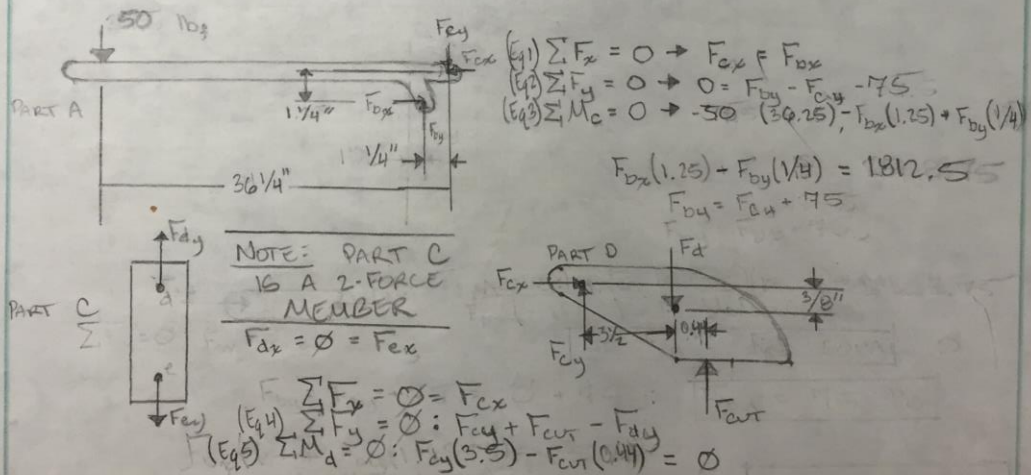 50 lbf
Fcy
Fcx
PART A
1 1/4"
Fbx
Fby
1/4"
36 1/4"
(Eq1) ΣFx = 0 → Fcx = Fbx
(Eq2) ΣFy = 0 → 0 = Fby - Fcy - 75
(Eq3) ΣMc = 0 → -50 (36.25) - Fbx(1.25) + Fby(1/4)
Fbx(1.25) - Fby(1/4) = 1812.5
Fby = Fcy + 75
Fdy
PART C
Σ
d
e
Fey
NOTE: PART C
IS A 2-FORCE
MEMBER
Fdx = Ø = Fex
PART D
Fd
Fcx
3/8"
3 1/2
0.44
Fcy
Fcut
ΣFx = Ø = Fcx
(Eq4) ΣFy = Ø: Fcy + Fcut - Fdy
(Eq5) ΣMd = Ø: Fcy(3.5) - Fcut(0.44) = Ø